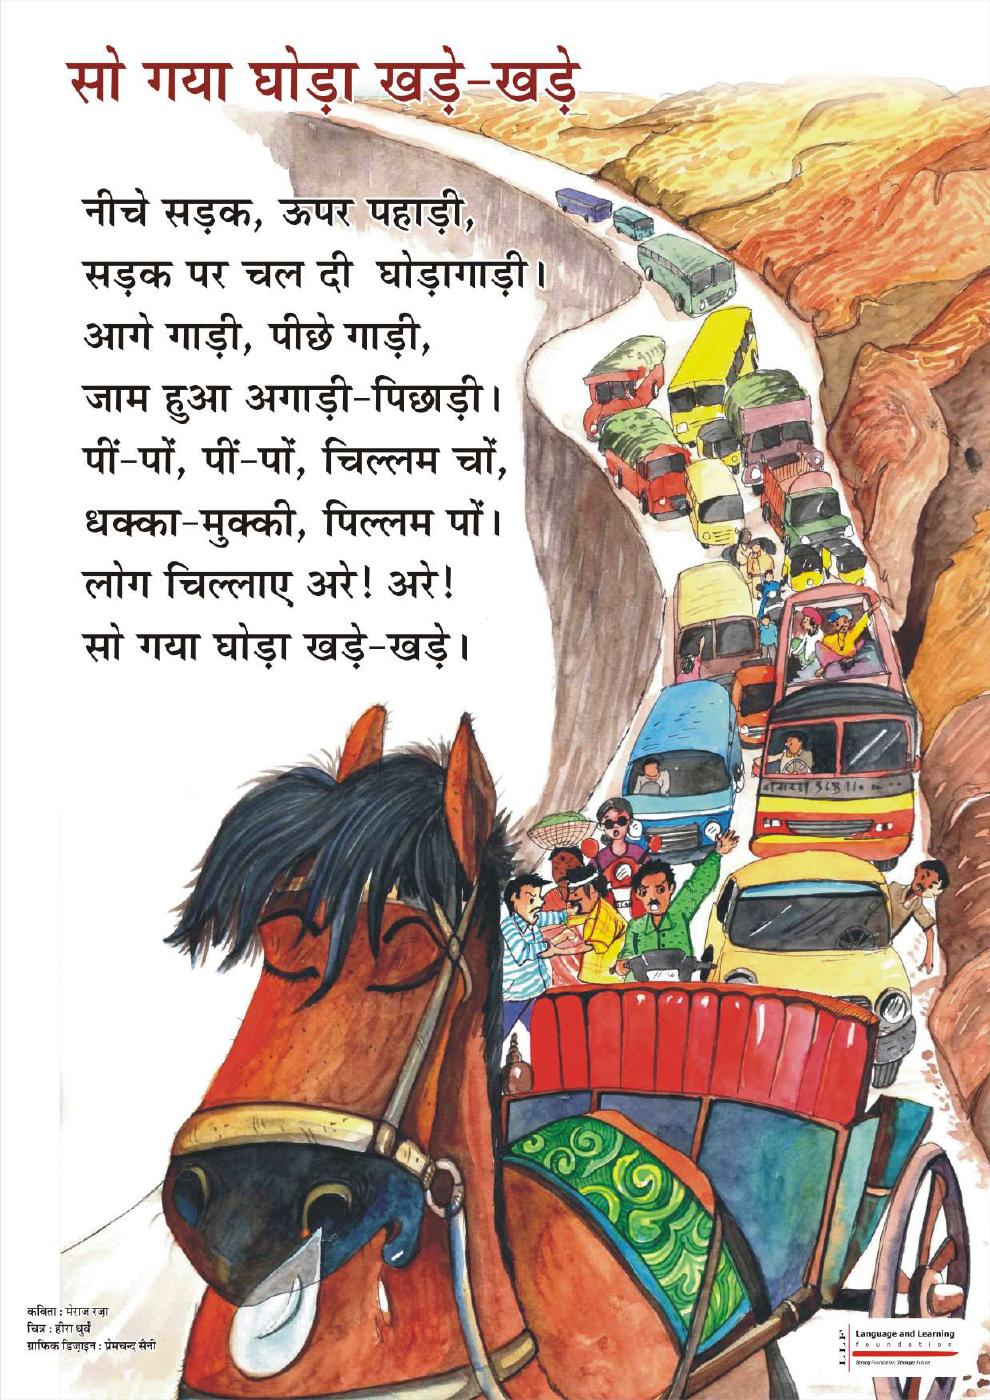 सो गया घोड़ा खड़े-खड़े
नीचे सड़क, ऊपर पहाड़ी,
सड़क पर चल दी घोड़ागाड़ी।
आगे गाड़ी, पीछे गाड़ी,
जाम हुआ अगाड़ी-पिछाड़ी।
पीं-पों, पीं-पों, चिल्लम चों,
धक्का-मुक्की, पिल्लम पों।
लोग चिल्लाए अरे! अरे!
सो गया घोड़ा खड़े-खड़े।
कविता : मेराज रज़ा
चित्र : हीरा धुर्वे
ग्राफिक डिज़ाइन : प्रेमचन्द सैनी
LLF
Language and Learning
foundation
Strong Foundation, Stronger Future